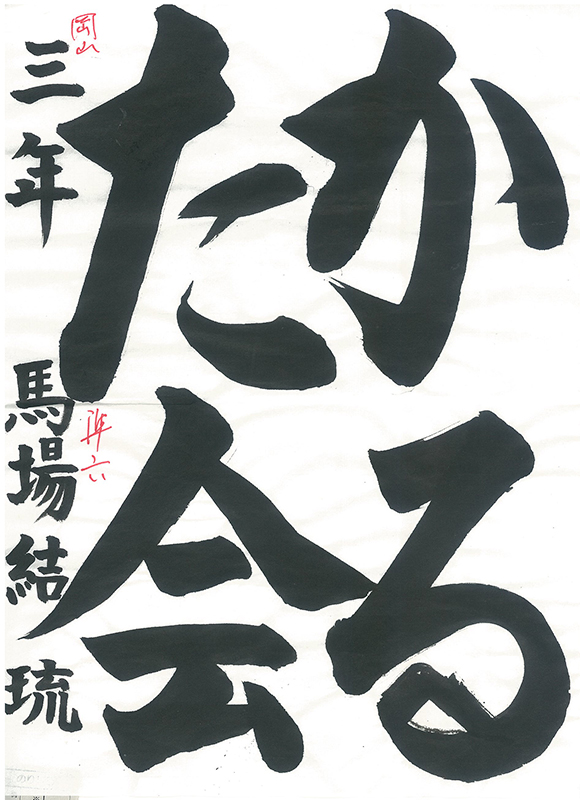 かる
た会
三年 馬場結琉
岡山
準六